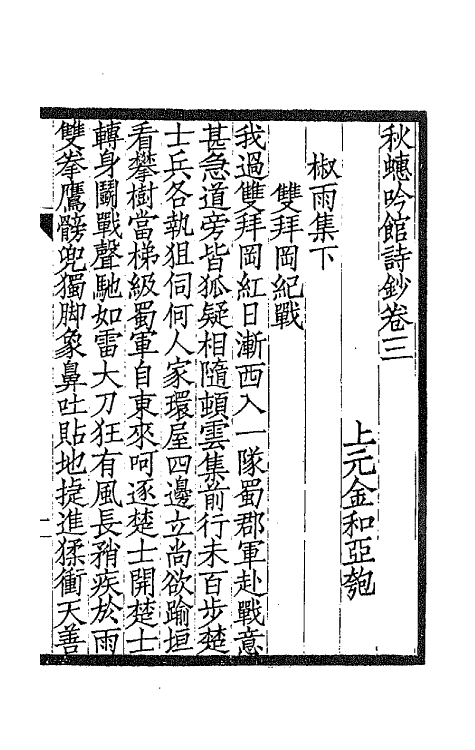 秋蟪吟館詩鈔卷三
上元金和亞匏
椒雨集下
雙拜岡紀戰
我過雙拜岡紅日漸西入一隊蜀郡軍赴戰意
甚急道旁皆狐疑相隨頓雲集前行未百步楚
士兵各執狙伺何人家環屋四邊立尚欲踰垣
看攀樹當梯級蜀軍自東來呵逐楚士開楚士
轉身鬭戰聲馳如雷大刀狂有風長矟疾於雨
雙拳鷹髈兜獨脚象鼻吐貼地㨗進猱衝天善